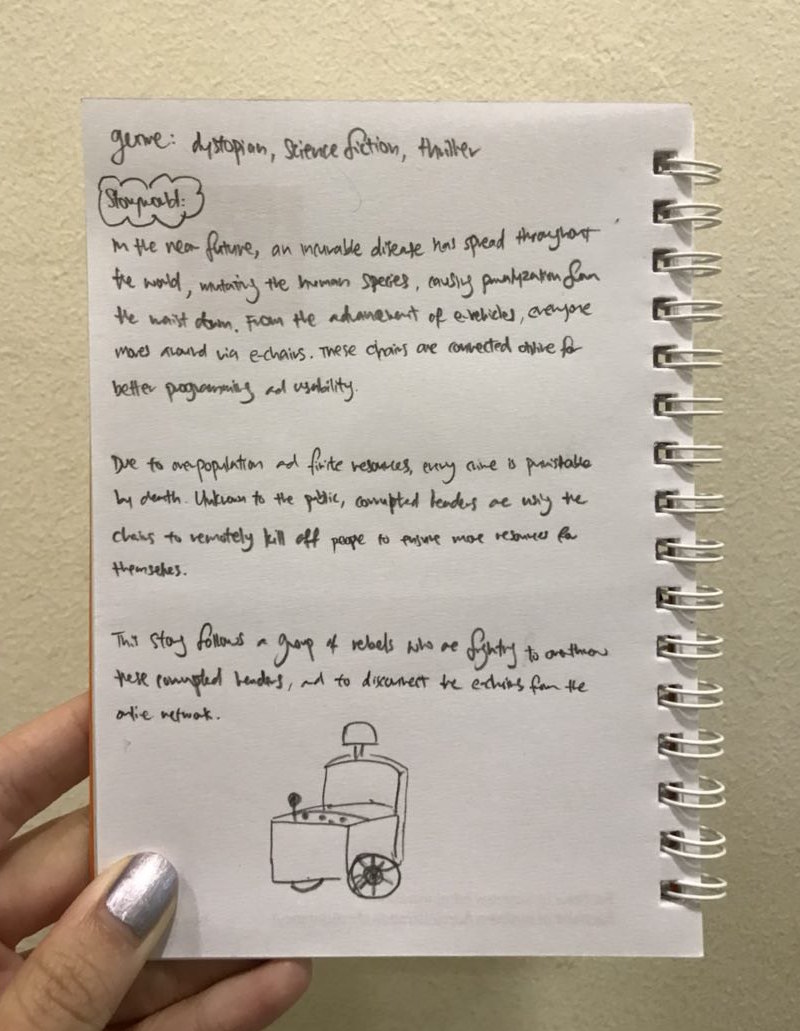 genre: dystopian, science fiction, thriller
Storyworld:
In the near future, an incurable disease has spread throughout
the world, mutating the human species, causing paralyzation from
the waist down. From the advancement of e-vehicles, everyone
moves around via e-chairs. These chairs are connected online for
better programming and usability.
Due to overpopulation and finite resources, every crime is punishable
by death. Unknown to the public, corrupted leaders are using the
chairs to remotely kill off people to ensure more resources for
themselves.
This story follows a group of rebels who are fighting to overthrow
these corrupted leaders, and to disconnect the e-chairs from the
online network.